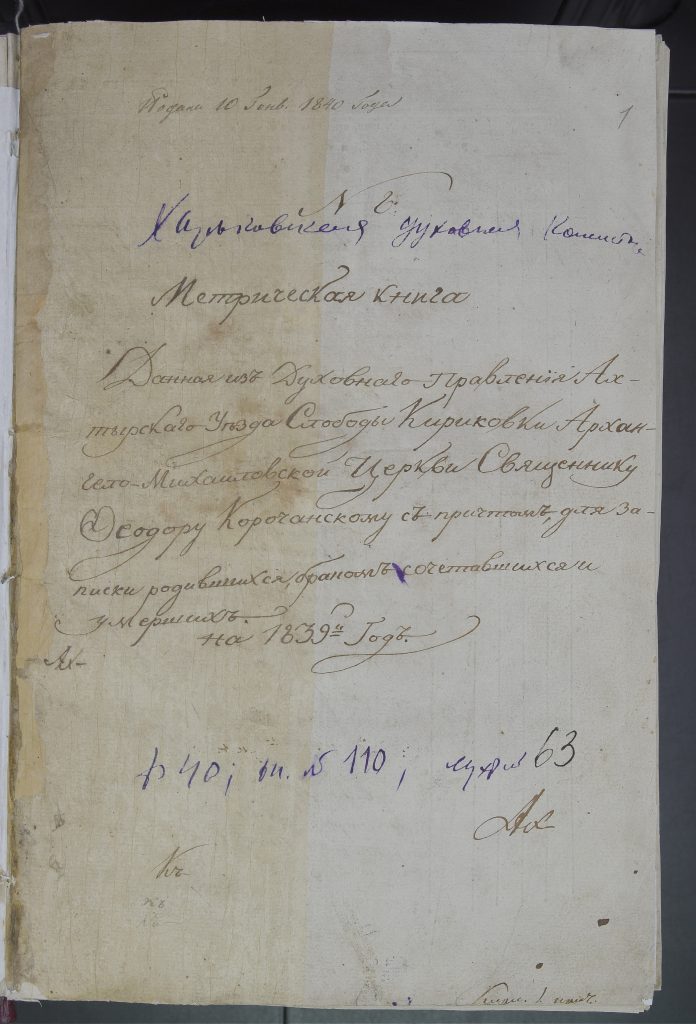 10 Генв. 1840 Года
1
Харьковская духовная Консист.
Метрическая книга
Данная изъ Духовнаго Правленія Ах-
тырскаго Уѣзда Слободы Кириковки Архан-
гело-Михаиловской Церкви Священнику
Ѳеодору Корочанскому съ причтомъ, для за-
писки родившихся, бракомъ сочетавшихся и
умершихъ.
на 1839й Годъ.
Ах-
ф 40; оп. № 110, 63
Ах
Къ